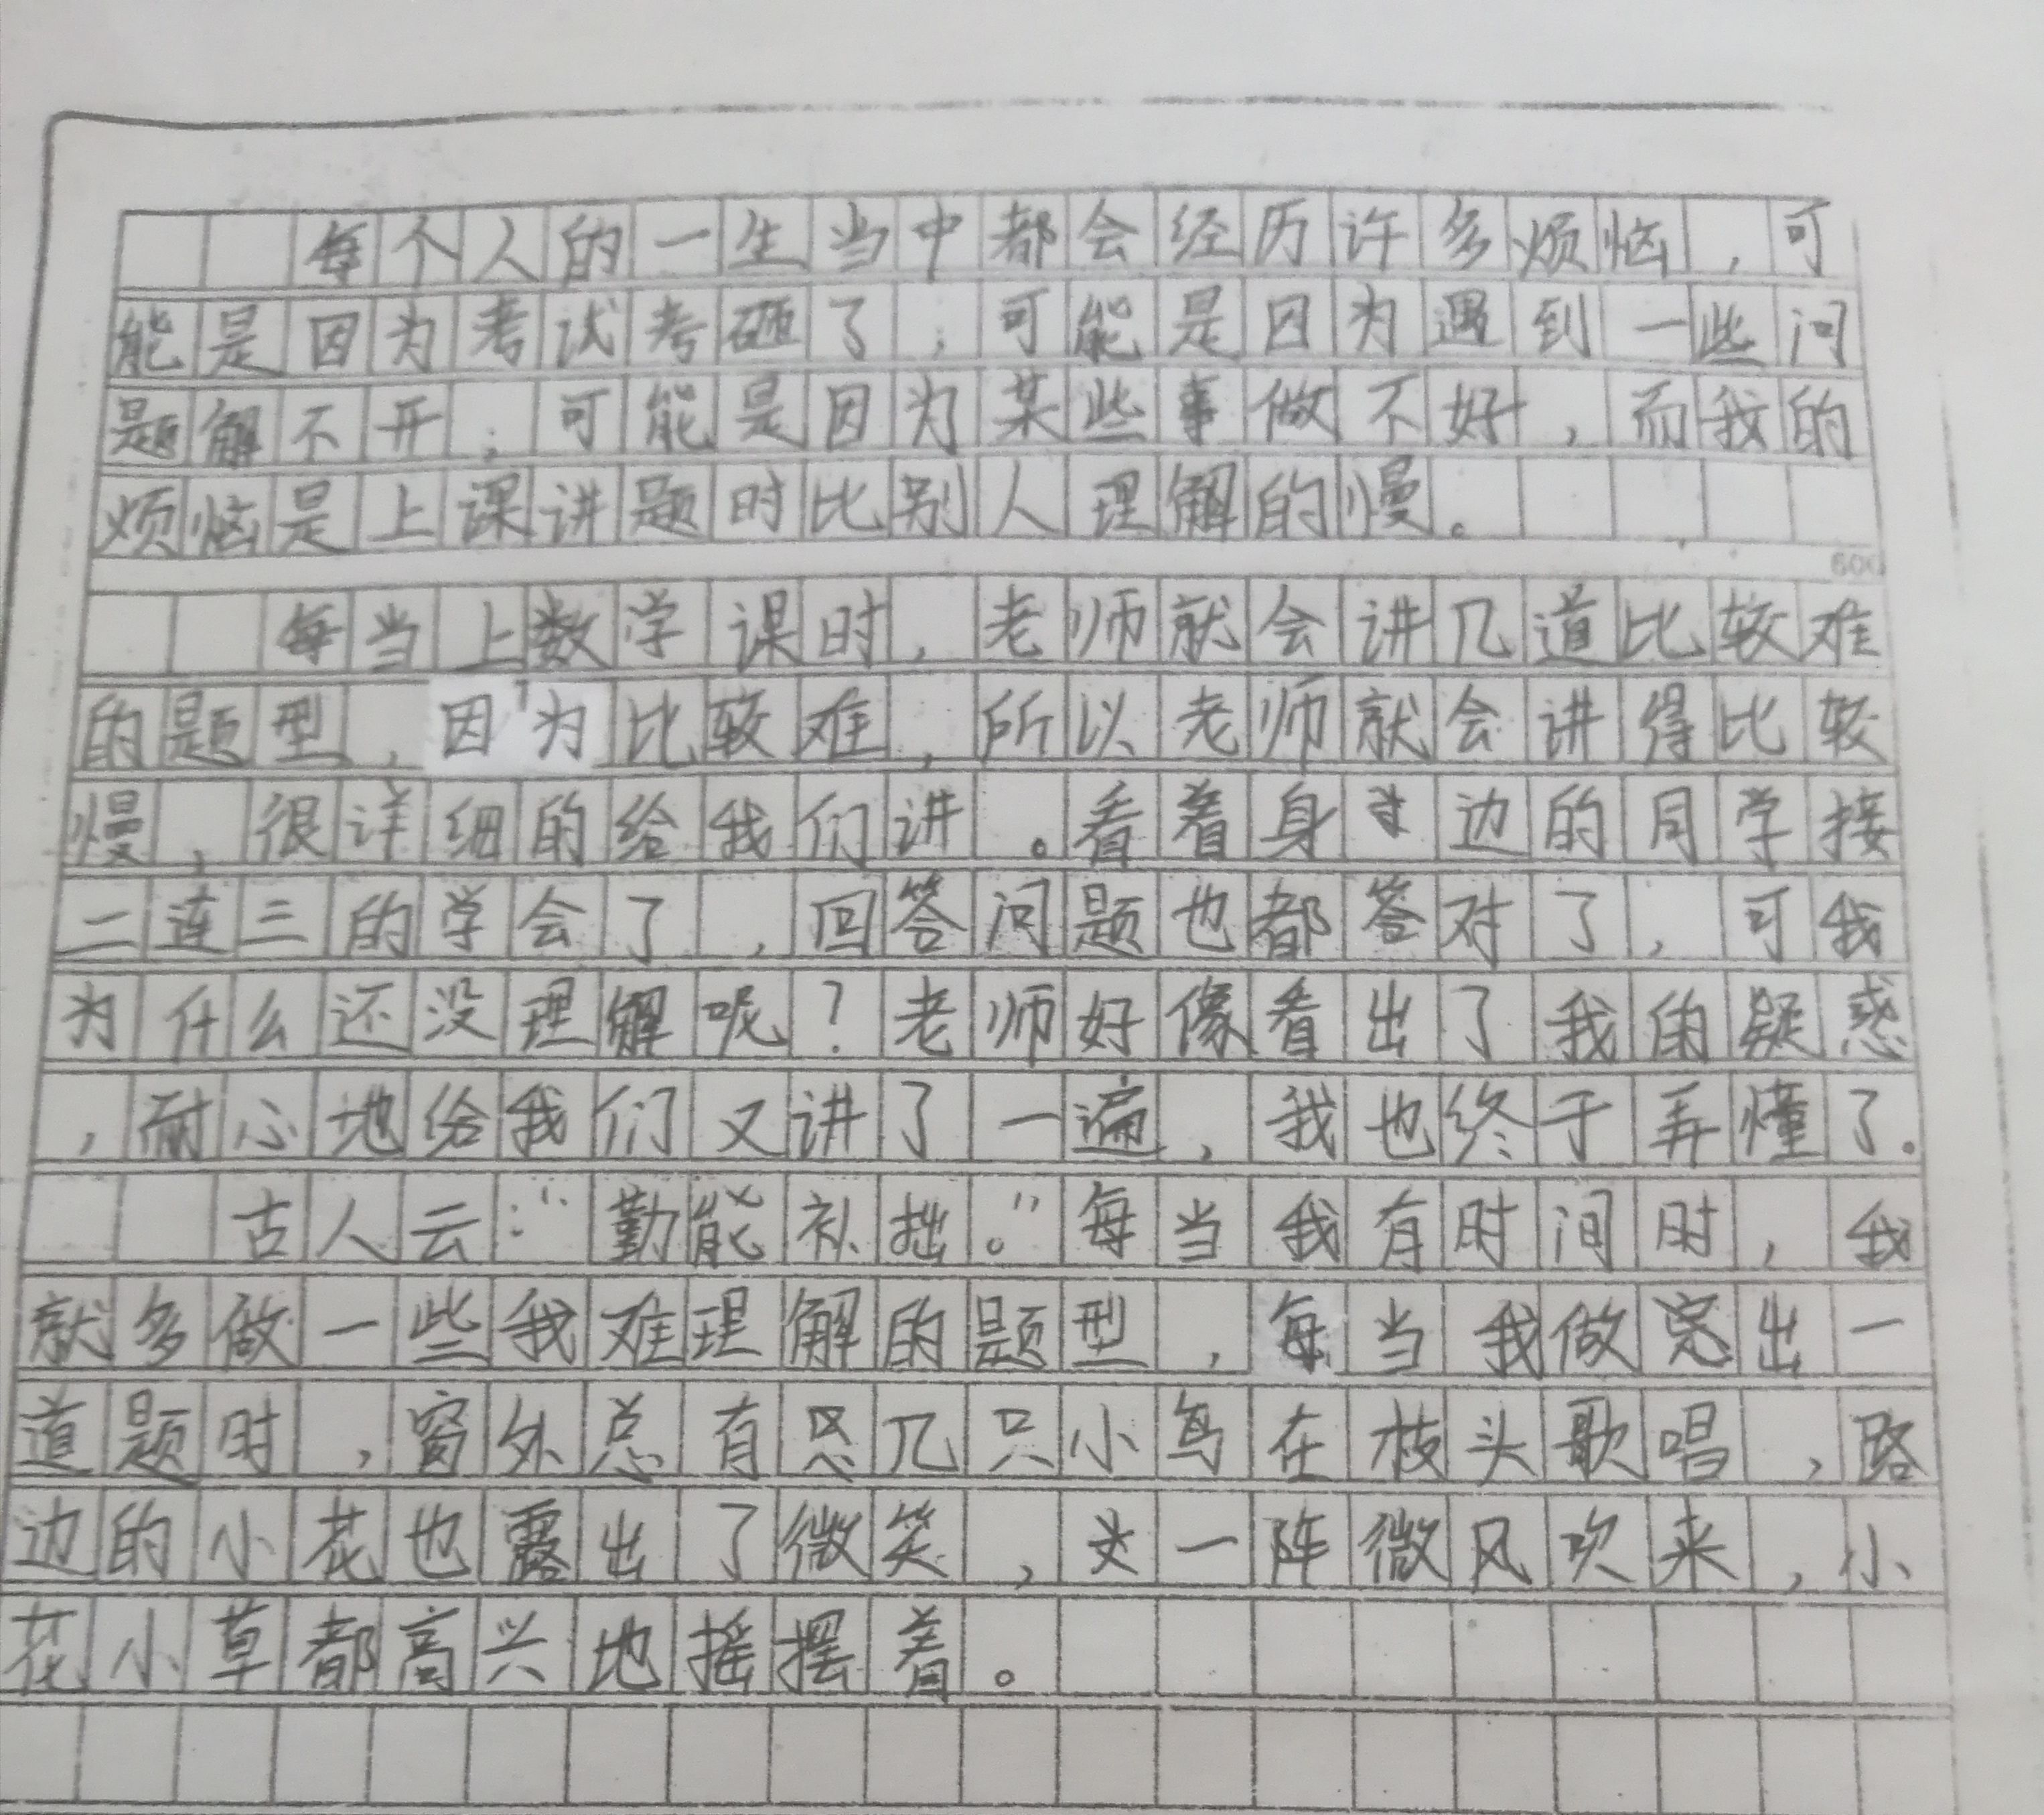 每个人的一生当中都会经历许多烦恼,可
能是因为考试考砸了;可能是因为遇到一些问
题解不开;可能是因为某些事做不好,而我的
烦恼是上课讲题时比别人理解的慢。
600
每当上数学课时,老师就会讲几道比较难
的题型,因为比较难,所以老师就会讲得比较
慢,很详细的给我们讲。看着身边的同学接
二连三的学会了,回答问题也都答对了,可我
为什么还没理解呢?老师好像看出了我的疑惑
,耐心地给我们又讲了一遍,我也终于弄懂了。
古人云:“勤能补拙。”每当我有时间时,我
就多做一些我难理解的题型,每当我做出一
道题时,窗外总有几只小鸟在枝头歌唱,路
边的小花也露出了微笑,一阵微风吹来,小
花小草都高兴地摇摆着。